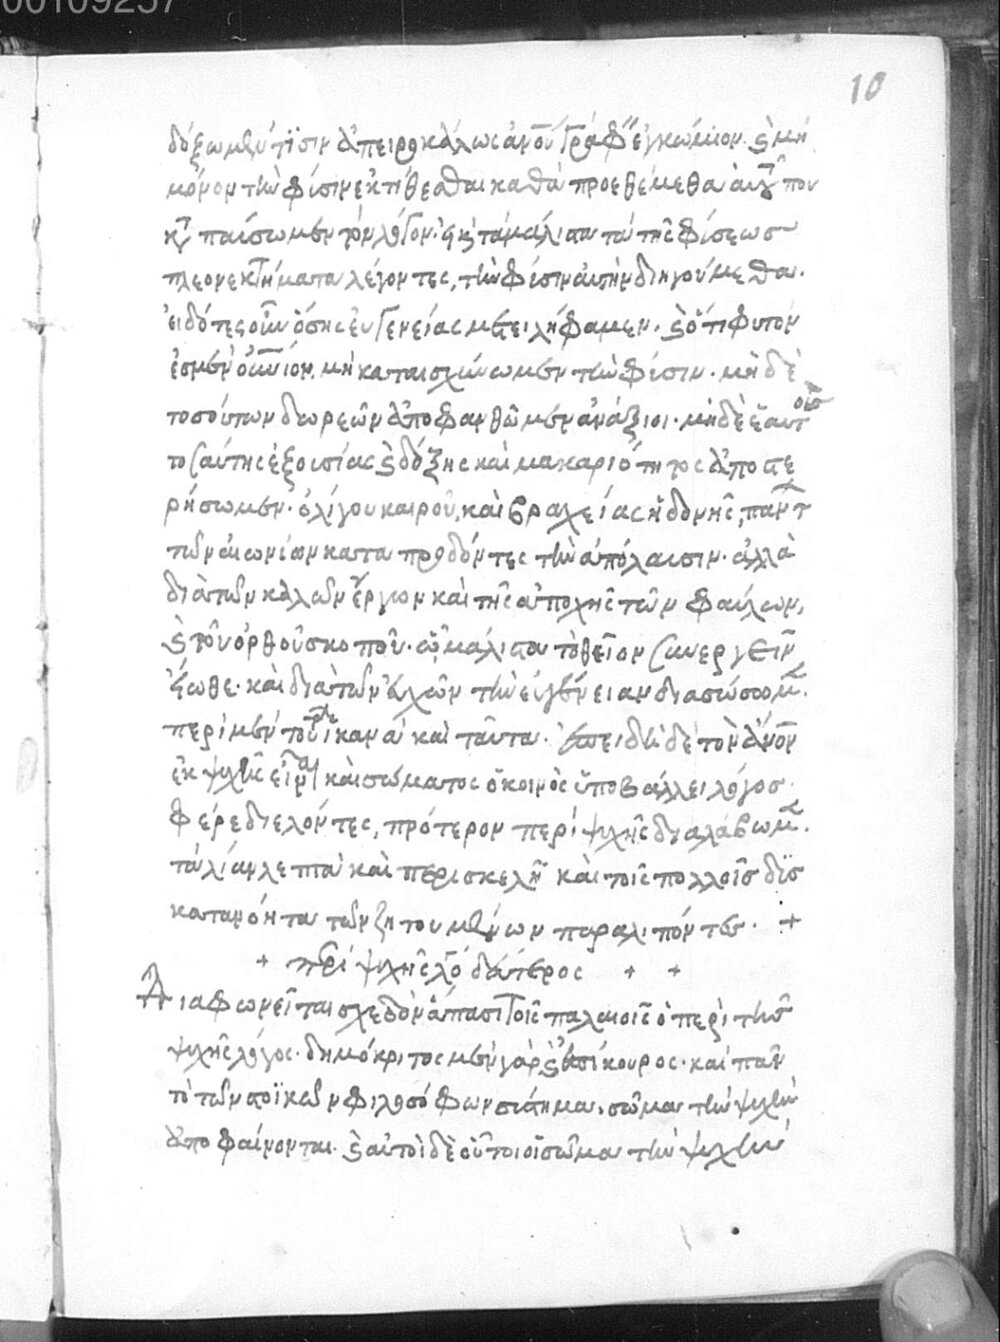 00109257
10
δόξωμεν τισιν ἀπειροκάλως ἀνου γράφειν ἐγκώμιον. καὶ μὴ
μόνον τὴν φύσιν ἐκτίθεσθαι καθὰ προεθέμεθα αὐτοῦ που
καταπαύσωμεν τὸν λόγον. εἰ καὶ τὰ μάλιστα τὰ τῆς φύσεως
πλεονεκτήματα λέγοντες, τὴν φύσιν αὐτὴν διηγούμεθα.
εἰδότες οὖν ὅσης εὐγενείας μετειλήφαμεν. καὶ ὅτι φυτόν
ἐσμὲν οὐνιον. μὴ καταισχύνωμεν τὴν φύσιν. μὴ δὲ
τοσούτων δωρεῶν ἀποφανθῶμεν ἀνάξιοι. μὴ δὲ ἑαυτοὺς
τοσαύτης ἐξουσίας καὶ δόξης καὶ μακαριότητος ἀποστε
ρήσωμεν. ὀλίγου καιροῦ, καὶ βραχείας ἡδονῆς, παντ
τῶν αἰωνίων καταπροδόντες τὴν ἀπόλαυσιν. ἀλλὰ
διὰ τῶν καλῶν ἔργων καὶ τῆς ἀποχῆς τῶν φαύλων,
καὶ τοῦ ὀρθοῦ σκοποῦ. ᾧ μάλιστα τὸ θεῖον συνεργεῖν
εἴωθε. καὶ διὰ τῶν εὐχῶν τὴν εὐγένειαν διασώσωμεν.
περὶ μὲν τούτων ἱκανὰ καὶ ταῦτα. ἐπειδὴ δὲ τὸν ἀνον
ἐκ ψυχῆς εἶναι καὶ σώματος ὁ κοινὸς ὑποβάλλει λόγος
φέρε διελόντες, πρότερον περὶ ψυχῆς διαλάβωμεν.
τὰ λίαν λεπτὰ καὶ περισκελῆ καὶ τοῖς πολλοῖς δυσ
κατανόητα τῶν ζητουμένων παραλιπόντες. +
+ περὶ ψυχῆς λό δεύτερος + +
Διαφωνεῖται σχεδὸν ἅπασι τοῖς παλαιοῖς ὁ περὶ τῆς
ψυχῆς λόγος. δημόκριτος μὲν γὰρ καὶ ἐπίκουρος. καὶ πᾶν
τὸ τῶν στοϊκῶν φιλοσόφων σύστημα. σῶμα τὴν ψυχὴν
ἀποφαίνονται. καὶ αὐτοὶ δὲ οὗτοι οἱ σῶμα τὴν ψυχὴν